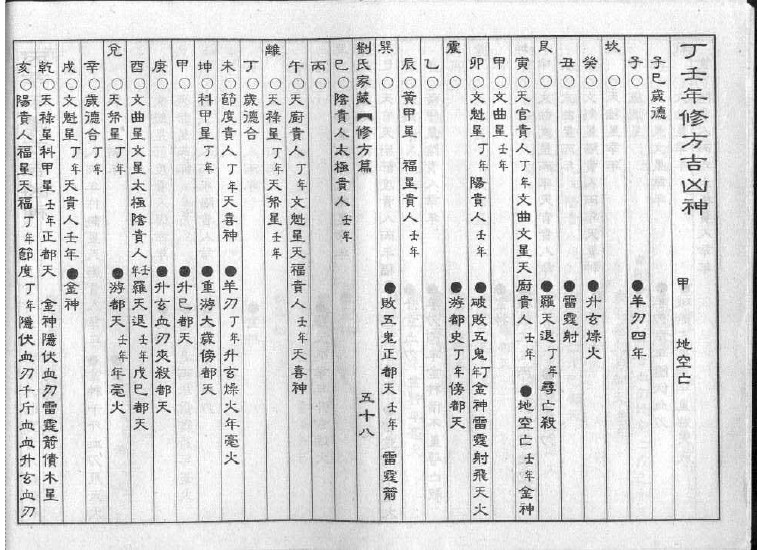 丁壬年修方吉凶神
甲 地空亡
子巳歲德
子○ ●羊刃四年
坎○
癸○ ●升玄燥火
丑○ ●雷霆射
艮○ ●羅天退丁年尋亡殺
寅○天官貴人丁年文曲文星天廚貴人壬年 ●地空亡壬年金神
甲○文曲星壬年
卯○文魁星丁年陽貴人壬年 ●破敗五鬼丁年金神雷霆射飛天火
震○ ●游都史丁年傍都天
乙○
辰○黃甲星 福星貴人壬年
巽○ ●敗五鬼正都天壬年 雷霆箭
劉氏家藏【修方篇 五十八
巳○陰貴人太極貴人壬年
丙○
午○天廚貴人丁年文魁星天福貴人壬年天喜神
離○天祿星丁年天帑星壬年
丁○歲德合
未○節度貴人丁年天喜神 ●羊刃丁年升玄燥火年毫火
坤○科甲星丁年 ●重游大歲傍都天
甲○ ●升巳都天
庚○ ●升玄血刃夾殺都天
酉○文曲星文星太極陰貴人壬年羅天退壬年戊巳都天
兌○天帑星丁年 ●游都天壬年年毫火
辛○歲德合丁年
戌○文魁星丁年天貴人壬年●金神
乾○天祿星科甲星壬年正都天 金神隱伏血刃雷霆箭債木星
亥○陽貴人福星天福丁年節度丁年隱伏血刃千斤血血升玄血刃